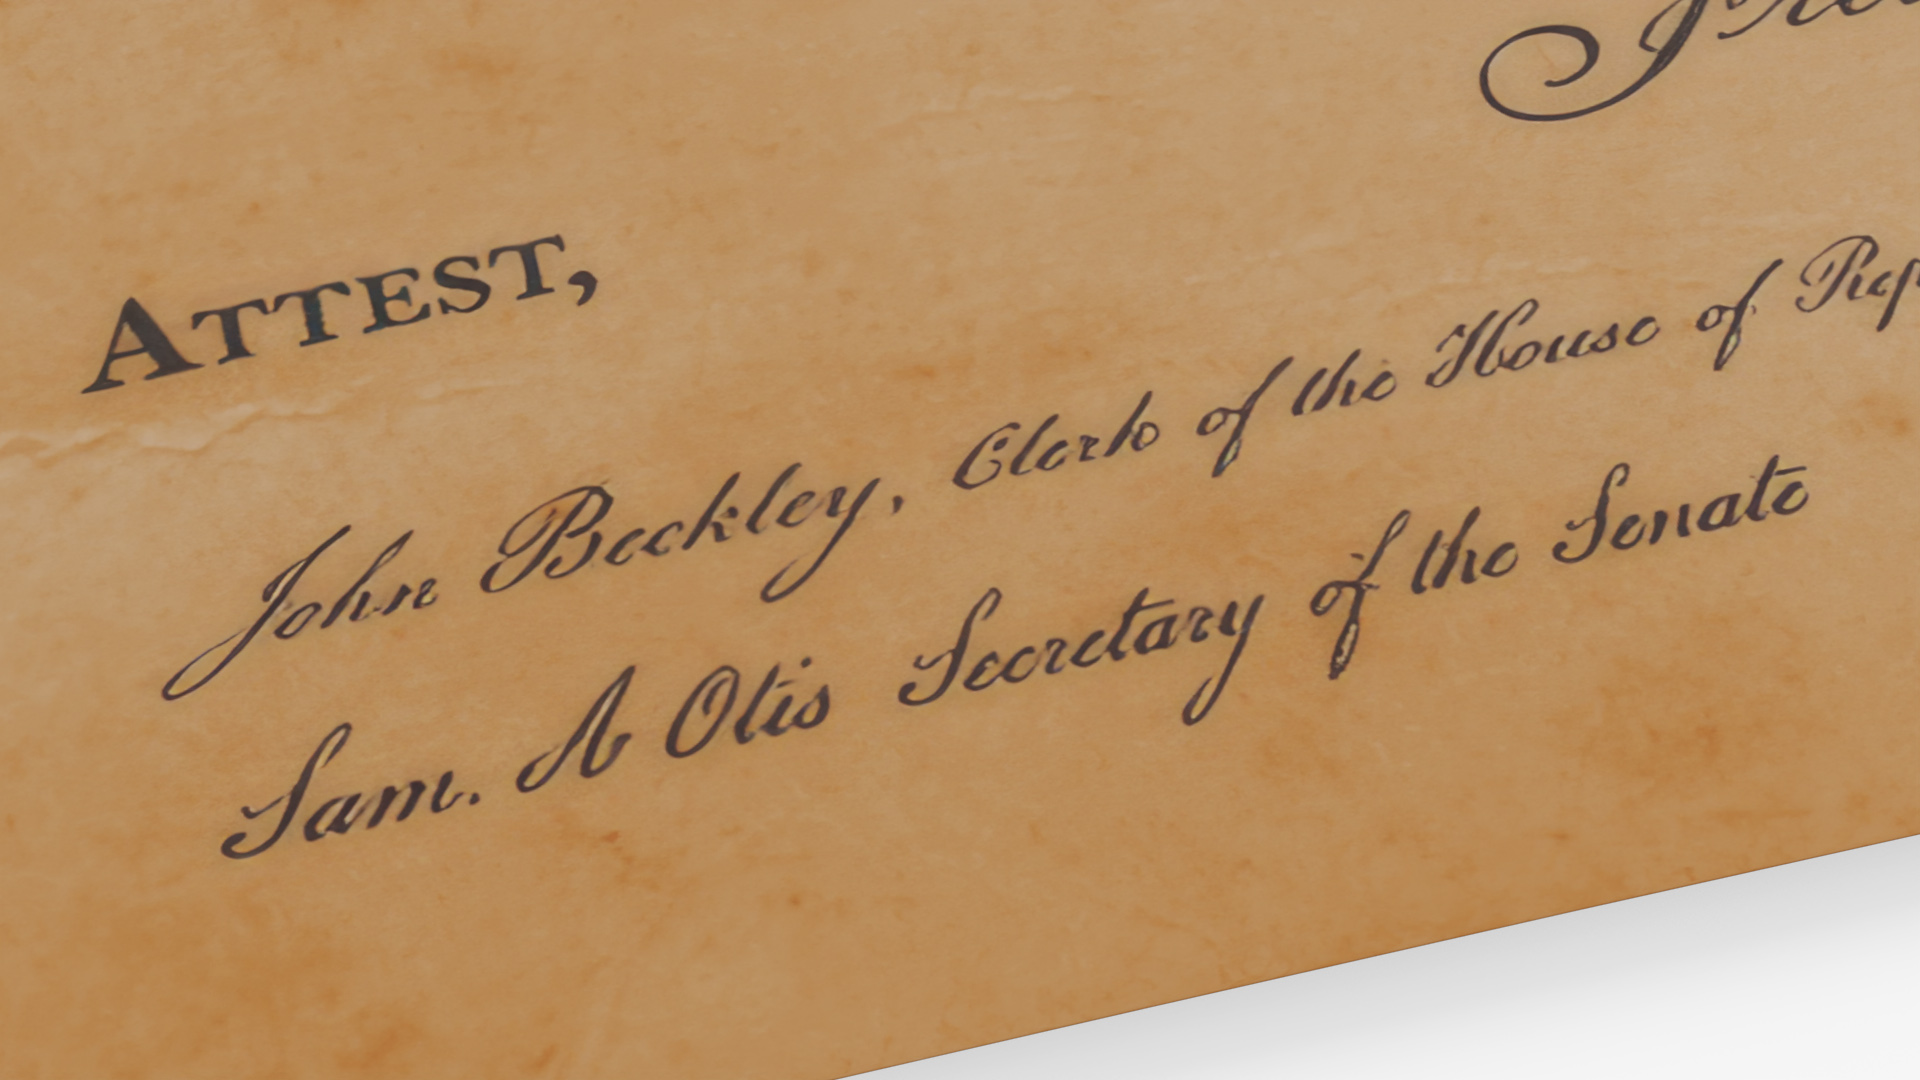 ATTEST,
John Beckley, Clerk of the House of Rep
Sam. A Otis Secretary of the Senate